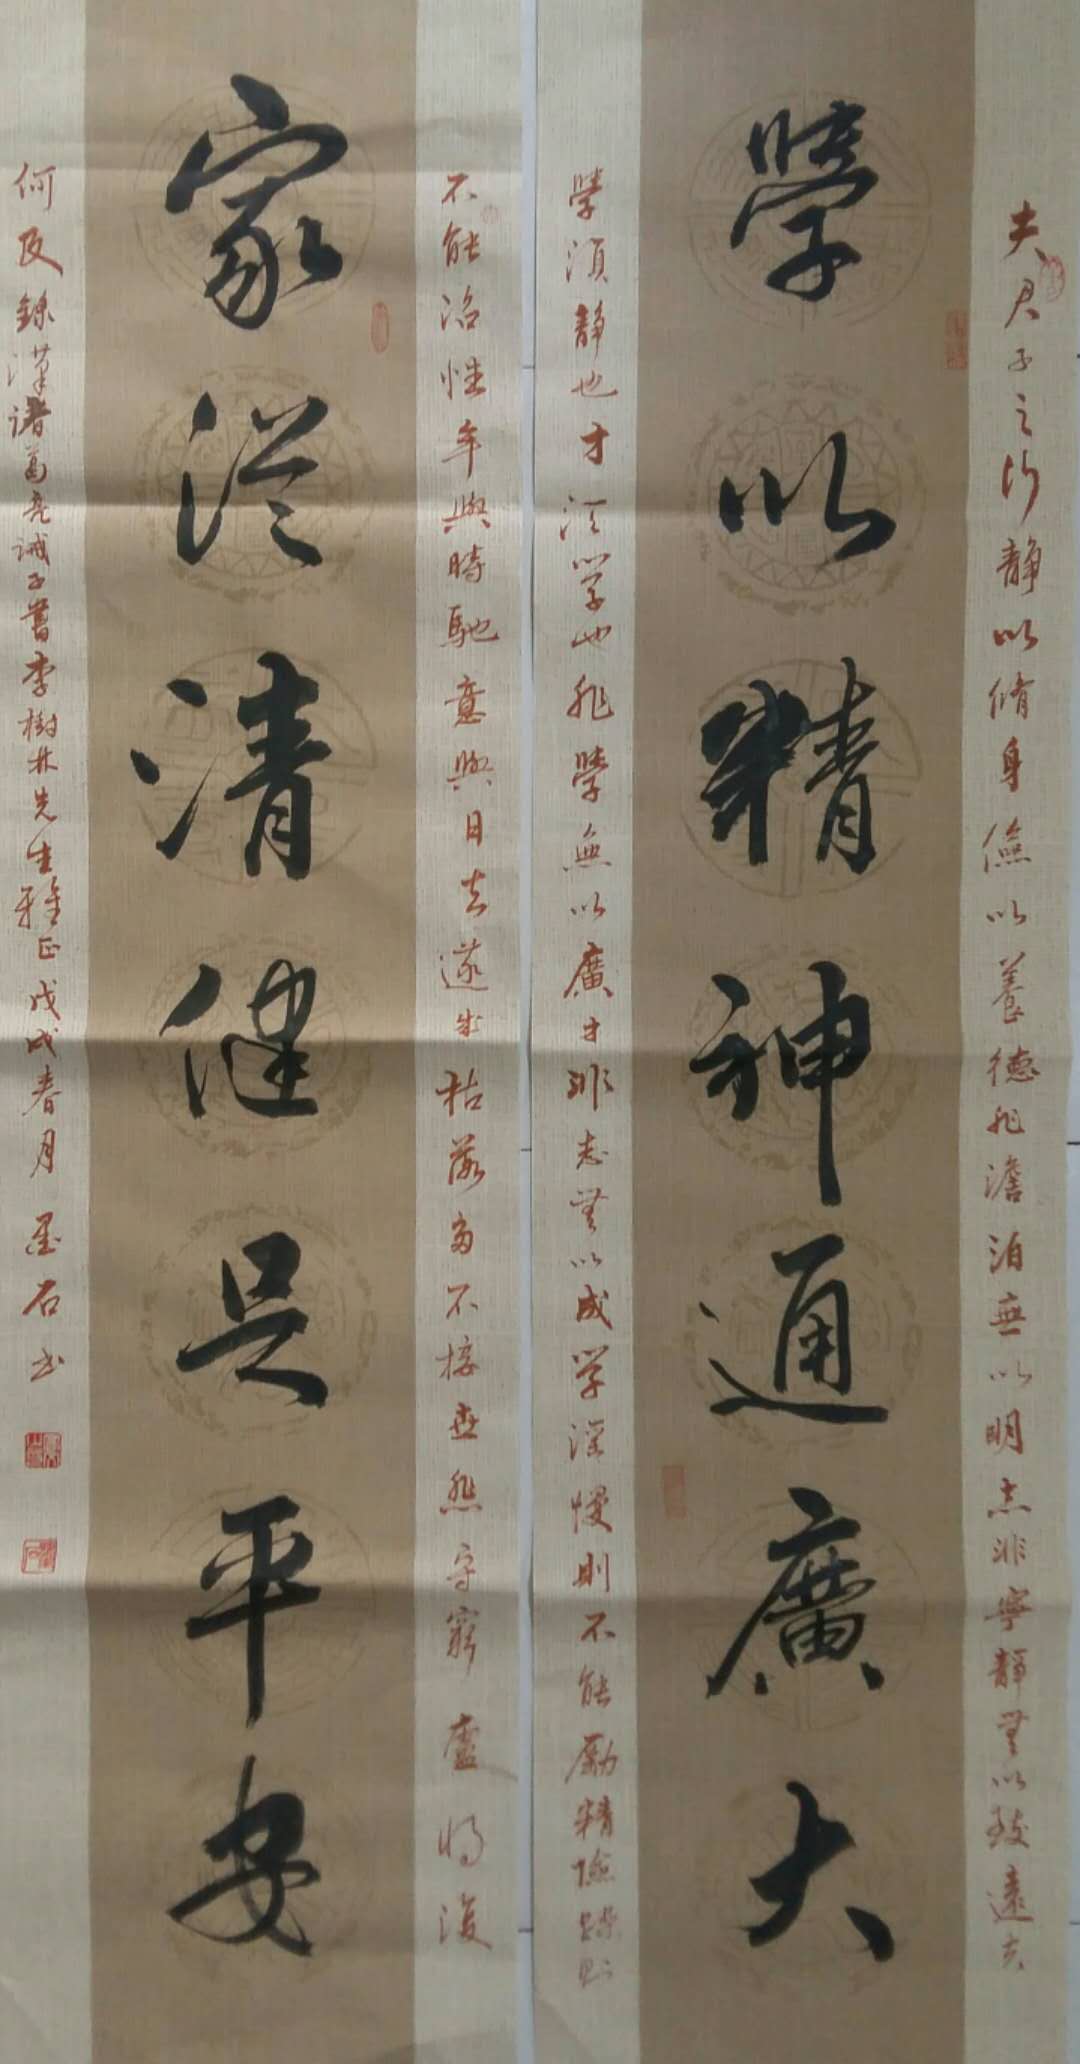 夫君子之行靜以修身儉以養德非澹泊無以明志非寧靜無以致遠夫
學以精神通廣大
學須靜也才須學也非學無以廣才非志無以成學淫慢則不能勵精險躁則
不能治性年與時馳意與日去遂成枯落多不接世悲守窮廬將復
家從清健是平安
何及錄漢諸葛亮誡子書李樹林先生雅正戊戌春月墨石书